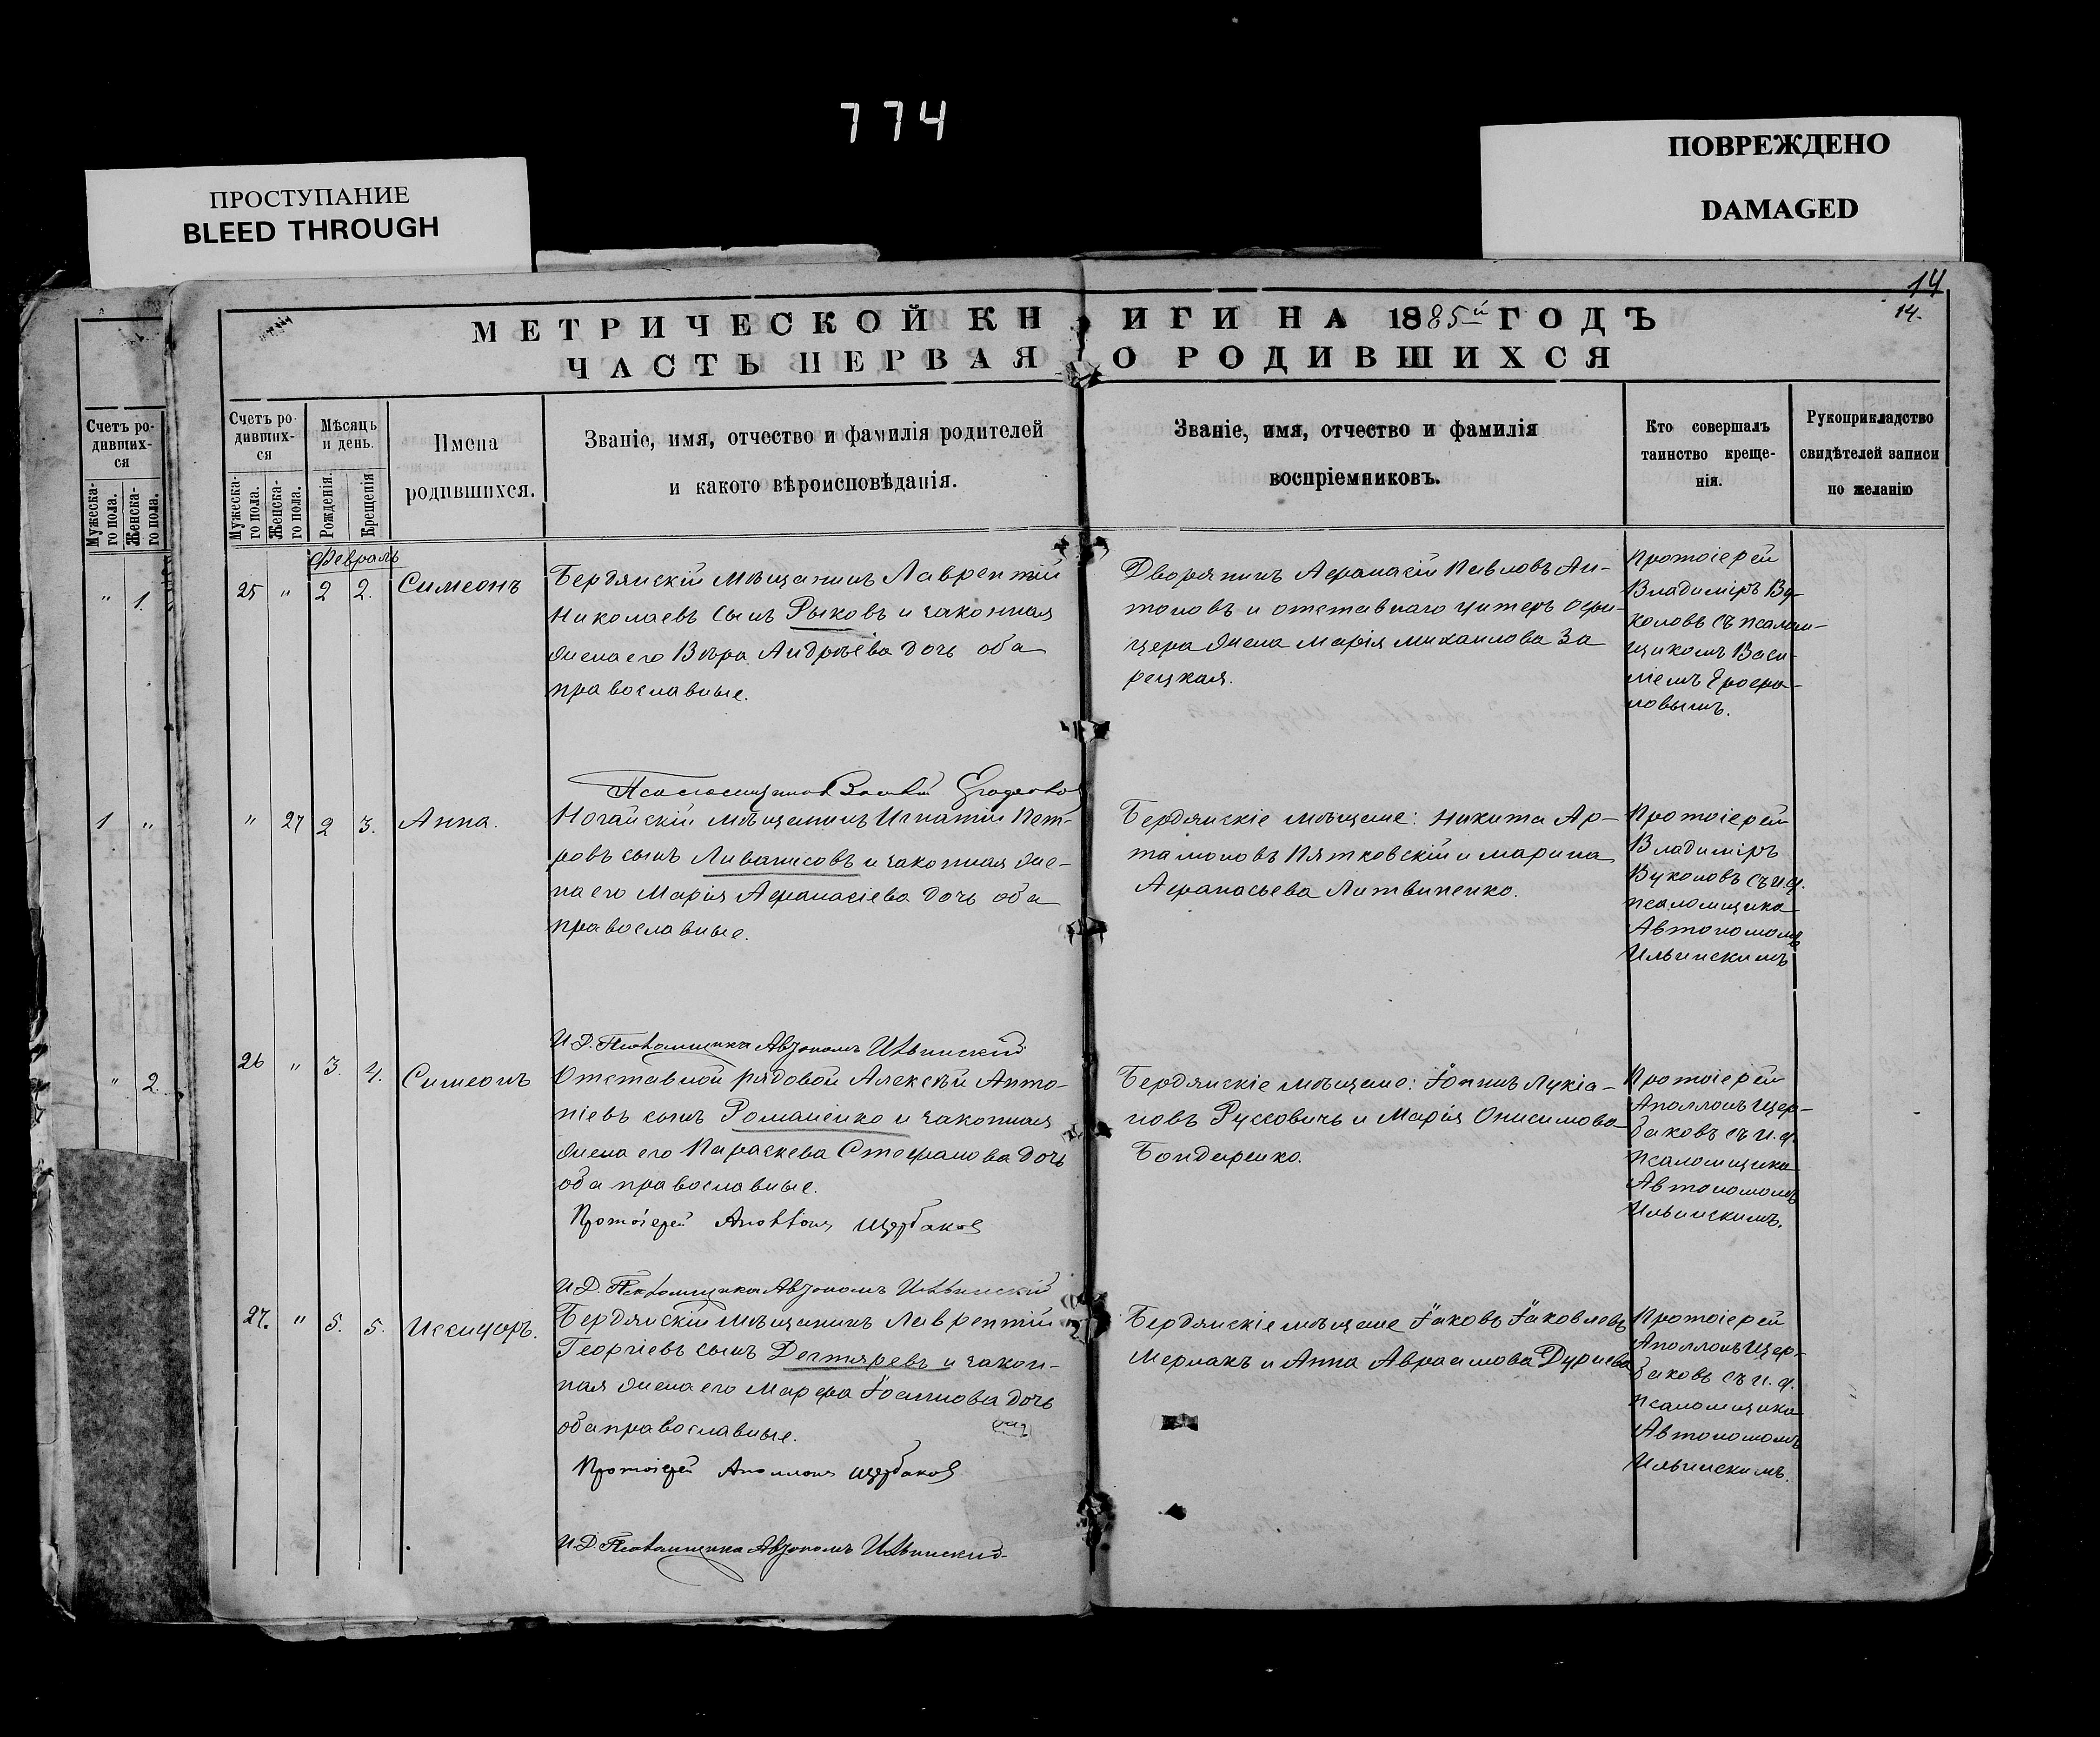 774
ПРОСТУПАНИЕ
BLEED THROUGH
ПОВРЕЖДЕНО
DAMAGED
14
14.
МЕТРИЧЕСКОЙ КНИГИ НА 1885й ГОДЪ
ЧАСТЬ ПЕРВАЯ О РОДИВШИХСЯ
Счетъ ро-
дивших-
ся
Мужеска-
го пола.
Женска-
го пола.
" 1.
1 "
" 2
Счетъ ро-
дивших-
ся
Мужеска-
го пола.
Женска-
го пола.
Мѣсяцъ
и день.
Рожденія.
Крещенія
Имена
родившихся.
Званіе, имя, отчество и фамилія родителей
и какого вѣроисповѣданія.
Званіе, имя, отчество и фамилія
воспріемниковъ.
Кто совершалъ
таинство креще-
нія.
Рукоприкладство
свидѣтелей записи
по желанію
Февраль
25 " 2 2. Симеонъ
Бердянскій мѣщанинъ Лаврентій
Николаевъ сынъ Рыковъ и законная
жена его Вѣра Андрѣева дочь оба
православные.
Дворянинъ Афанасій Павловъ Ан-
тоновъ и отставнаго унтеръ офи-
цера жена Марія Михаилова За
рецкая.
Протоіерей
Владиміръ Ву-
коловъ съ псалом-
щикомъ Васи-
ліемъ
новымъ.
Псаломщикъ Василій
" 27 2 3. Анна.
Ногайскій мѣщанинъ Игнатій Пет-
ровъ сынъ Ливанисовъ и законная же-
на его Марія Афанасіева дочь оба
православные.
Бердянскіе мѣщане: Никита Ар-
тамоновъ Пятковскій и Марина
Афанасьева Литвиненко.
Протоіерей
Владиміръ
Вуколовъ съ и.д.
псаломщика
Автономомъ
Ильинскимъ
И.Д. Псаломщика Автономъ Ильинскій
26 " 3. 4. Симеонъ
Отставной рядовой Алексѣй Анто-
ніевъ сынъ Романенко и законная
жена его Параскева Стефанова дочь
оба православные.
Протоіерей Аполлонъ Щербаковъ
Бердянскіе мѣщане: Іоаннъ Лукіа-
новъ Руссовичъ и Марія Онисимова
Бондаренко.
Протоіерей
Аполлонъ Щер-
баковъ съ и.д.
псаломщика
Автономомъ
Ильинскимъ.
И.Д. Псаломщика Автономъ Ильинскій
27. " 5. 5. Иссидоръ.
Бердянскій мѣщанинъ Лаврентій
Георгіевъ сынъ Дегтяревъ и закон-
ная жена его Марфа Іоаннова дочь
оба православные.
Протоіерей Аполлонъ Щербаковъ
Бердянскіе мѣщане Іаковъ Іаковлевъ
Мермакъ и Анна Авраамова Дурнева
Протоіерей
Аполлонъ Щер-
баковъ съ и.д.
псаломщика
Автономомъ
Ильинскимъ.
И.Д. Псаломщика Автономъ Ильинскій